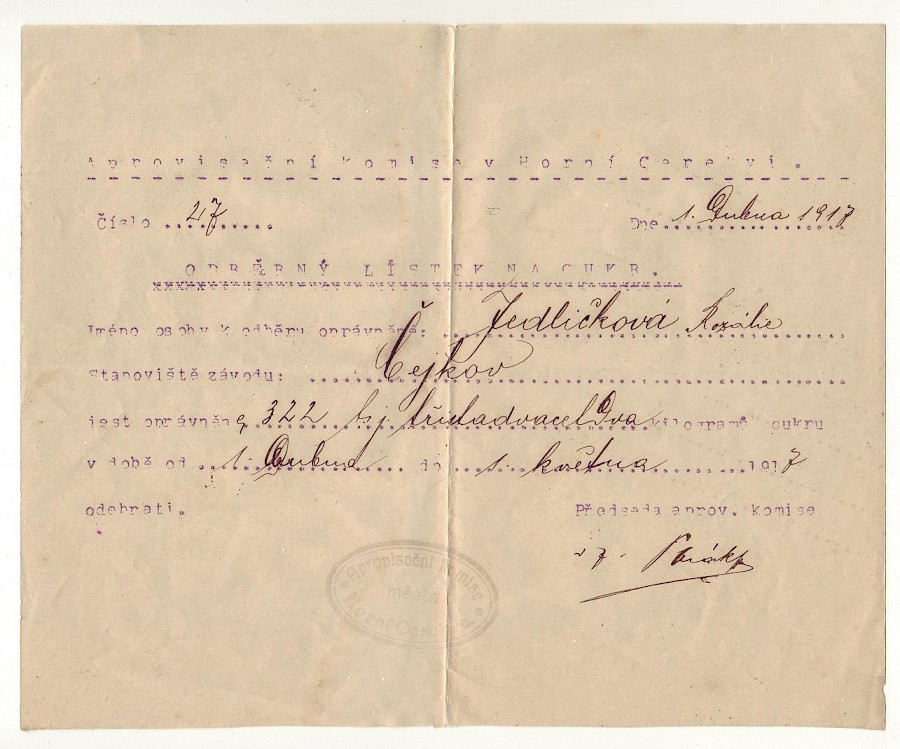 Aprovisační komise v Horní Cerekvi.
Číslo 27 Dne 1. Dubna 1917
ODBĚRNÝ LÍSTEK NA CUKR.
Jméno osoby k odběru oprávněné: Jedličková Rozálie
Stanoviště závodu: Čejkov
jest oprávněna 322 tj. třistadvacetdva kilogramů cukru
v době od 1. Dubna do 1. května 1917
odebrati. Předseda aprov. komise
Aprovisační komise
města
Horní Cerekve